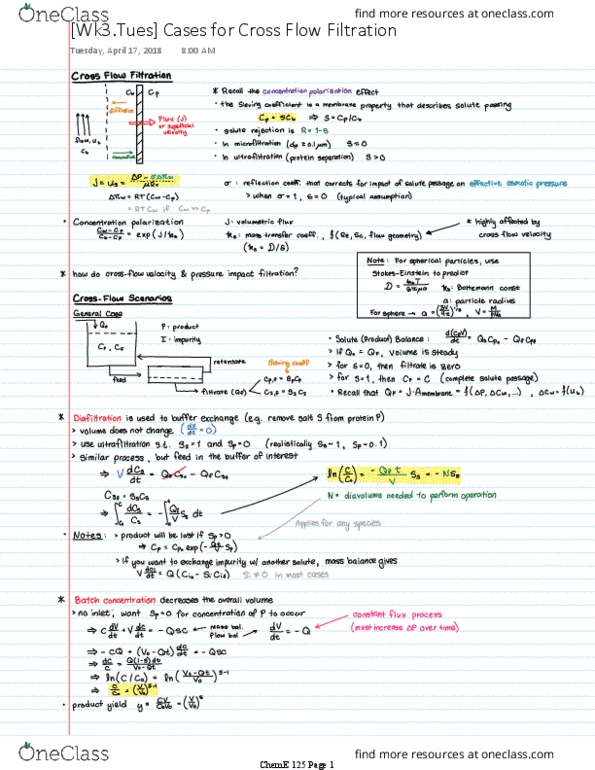 OneClass
find more resources at oneclass.com
[Wk3.Tues] Cases for Cross Flow Filtration
Tuesday, April 17, 2018 8:00 AM
Cross Flow Filtration
Cw Cp
diffusion
Flux (J)
or superficial
velocity
flow, u
Cb
convective
* Recall the concentration polarization effect
• the Sieving coefficient is a membrane property that describes solute passing
Cp = SCb ⇒ S = Cp/Cb
• solute rejection is R = 1-S
• In microfiltration (dp ≥ 0.1μm) S≈0
• In ultrafiltration (protein separation) S>0
ΔπM = RT(Cw-Cp)
= RTCw if Cw >> Cp
σ : reflection coeff. that corrects for impact of solute passage on effective osmotic pressure
> when σ = 1, S = 0 (typical assumption)
• Concentration polarization
Cw-Cp / Cb-Cp = exp(J/kc)
J: volumetric flux
mass transfer coeff., f(Re, Sc, flow geometry)
* highly affected by
cross flow velocity
* how do cross-flow velocity & pressure impact filtration?
Note: For spherical particles, use
Stokes-Einstein to predict
kB: Boltzmann const
a: particle radius
For sphere →
Cross-Flow Scenarios
General Case
P: product
I: impurity
retentate
feed
Sieving coeff
filtrate (QP)
• Solute (Product) Balance: d(CPV)/dt = Q0CP0 - QPCPP
> If Q0 = QP, volume is steady
> for S=0, then filtrate is zero
> for S=1, then CP = C (complete solute passage)
• Recall that QP = J·Amembrane = f(ΔP, ΔCw,...) , ΔCw = f(uB)
* Diafiltration is used to buffer exchange (e.g. remove salt S from protein P)
> volume does not change (dV/dt = 0)
> use ultrafiltration s.t. Ss = 1 and Sp = 0 (realistically Ss~1, Sp~0.1)
> Similar process, but feed in the buffer of interest
N = diavolume needed to perform operation
Applies for any species
• Notes: > product will be lost if Sp>0
> If you want to exchange impurity w/ another solute, mass balance gives
Si ≠ 0 in most cases
* Batch concentration decreases the overall volume
> no inlet; want Sp=0 for concentration of P to occur
⇒ C dV/dt + V dC/dt = -QSC
mass bal.
flow bal.
dV/dt = -Q
constant flux process
(must increase ΔP over time)
⇒ -CQ + (V0-Qt) dC/dt = -QSC
⇒ dC/C = Q(1-S)dt / V0-Qt
⇒ ln(C/C0) = ln(V0-Qt / V0)^S-1
⇒ C/C0 = (V/V0)^S-1
• product yield y = CV/C0V0 = (V/V0)^S
OneClass
find more resources at oneclass.com
ChemE 125 Page 1